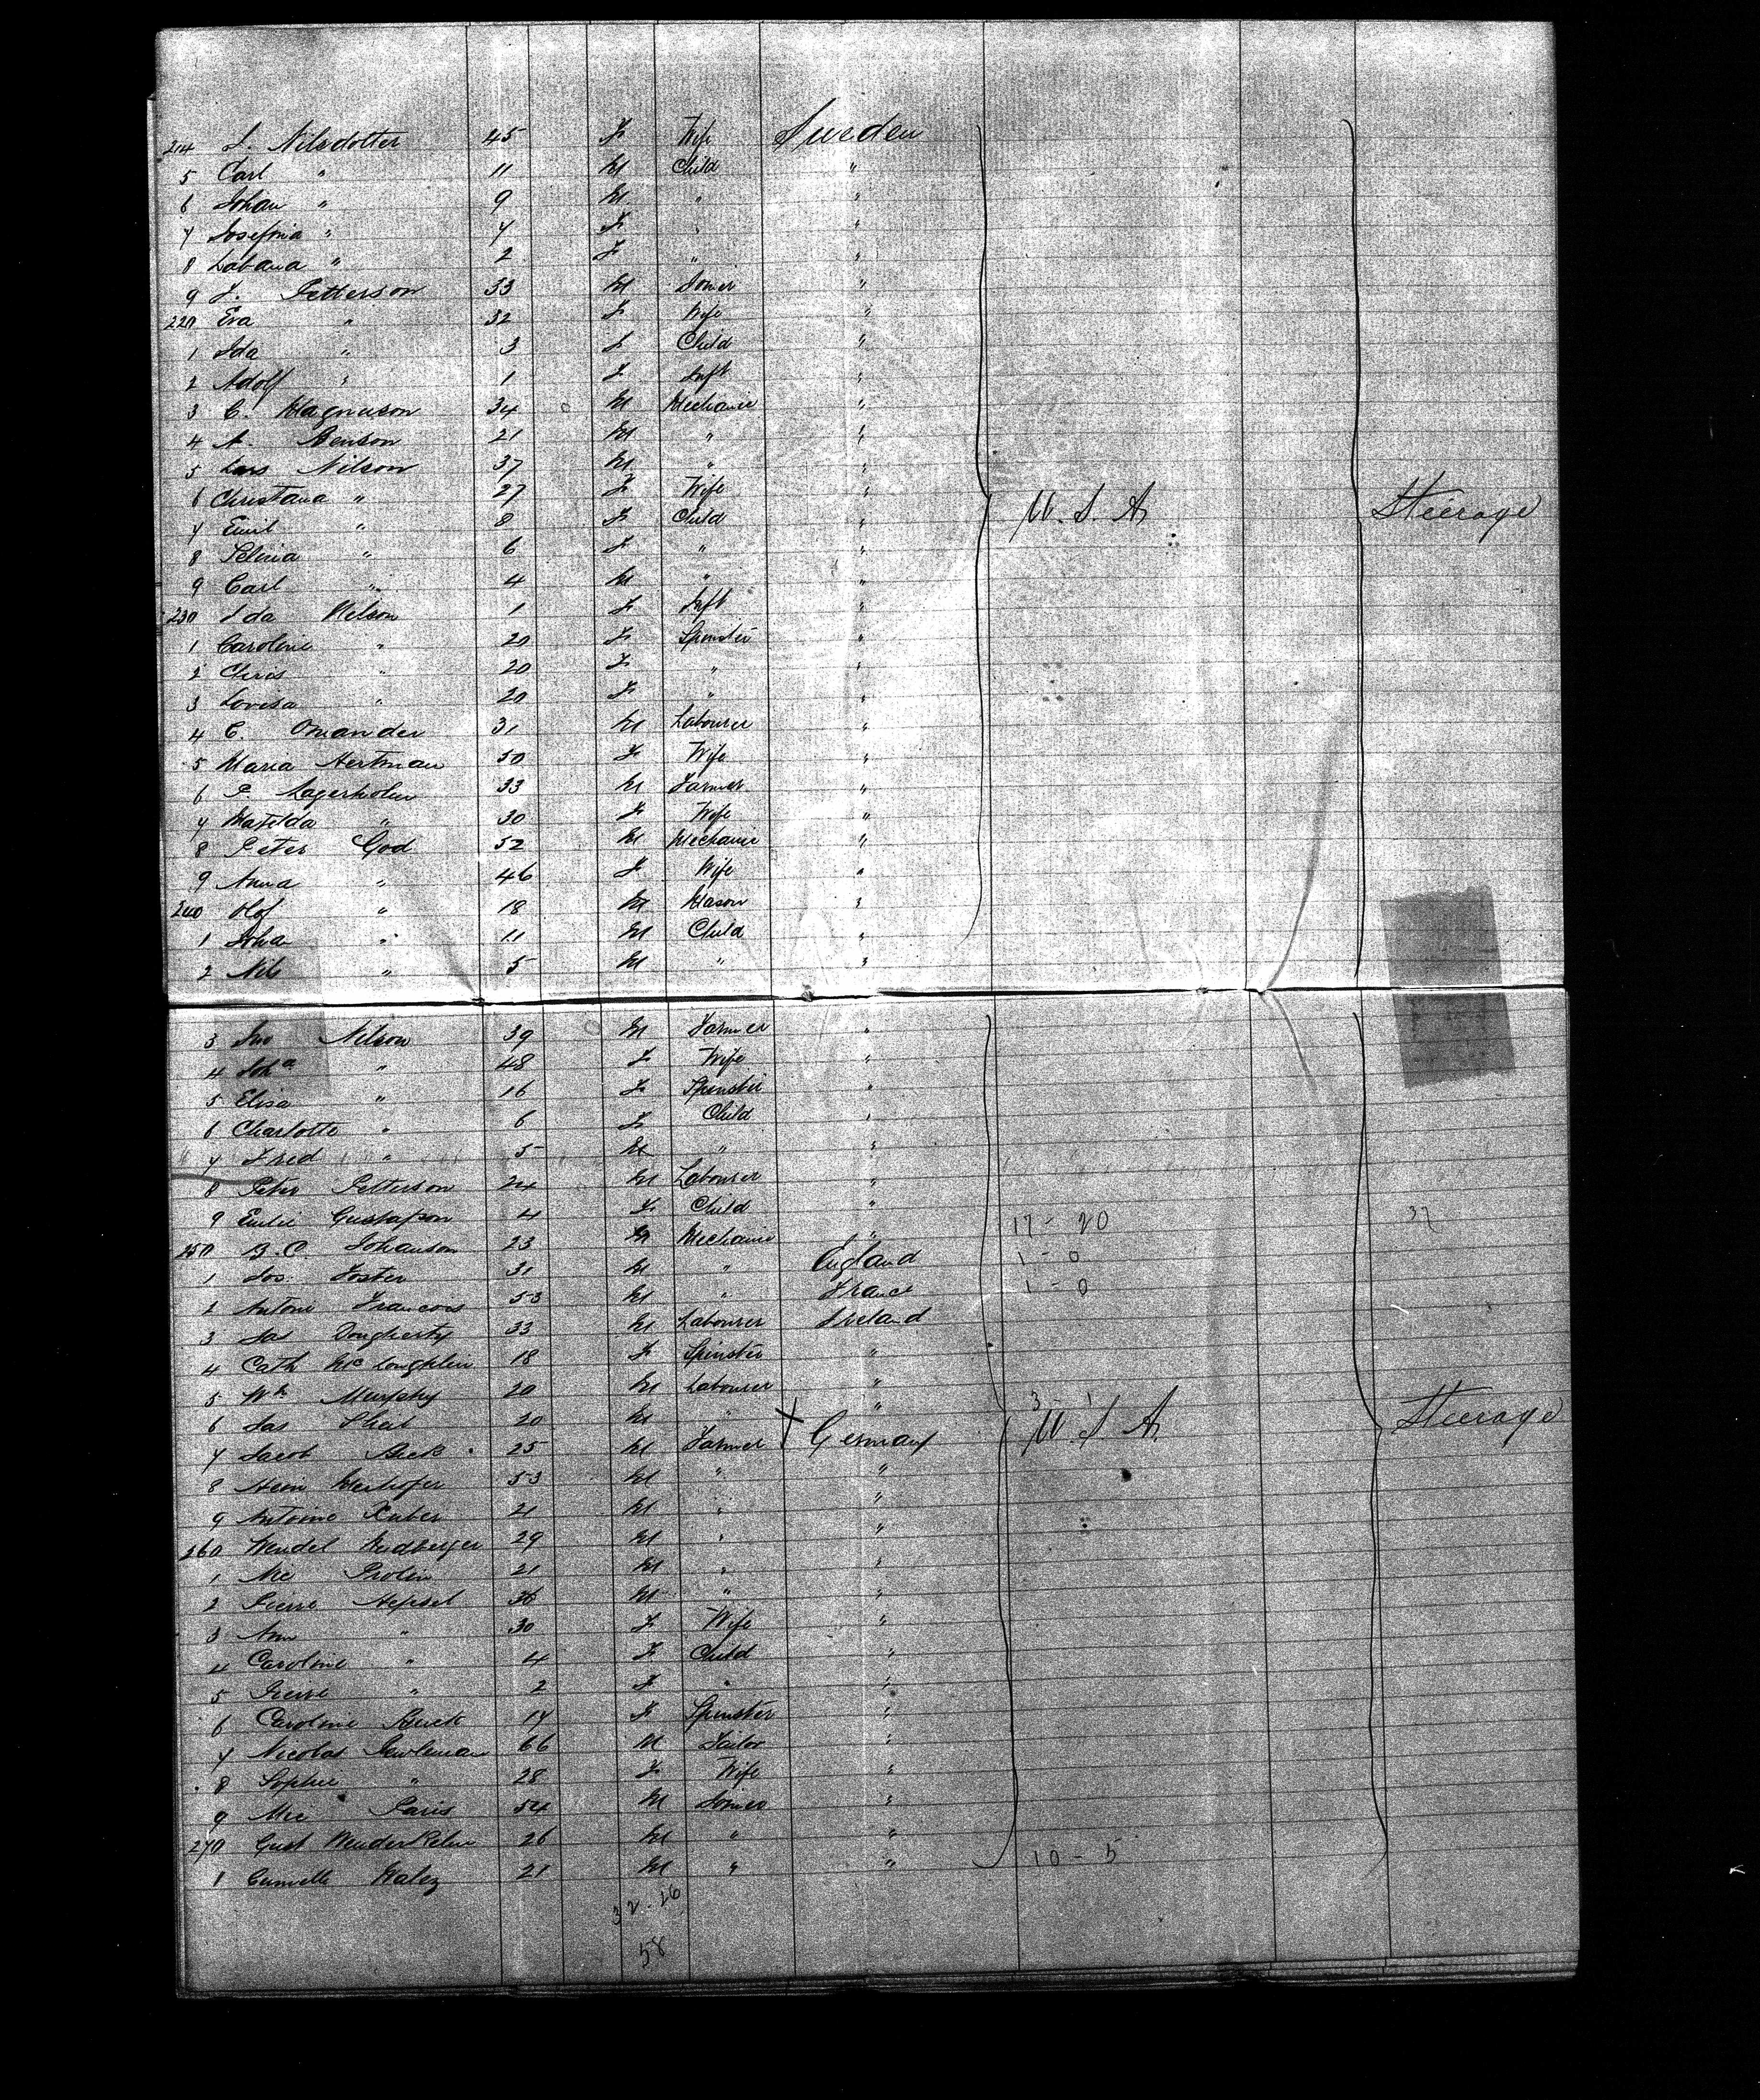 214 L. Nilsdotter 45 F Wife Sweden
5 Carl " 11 M Child "
6 Johan " 9 M " "
7 Josefina " 7 F " "
8 " 2 F " "
9 J. Petterson 33 M Joiner "
220 Eva " 32 F Wife "
1 Ida " 3 F Child "
2 Adolf " 1 F Inft "
3 C. Magnuson 34 M Mechanic "
4 A. Benson 21 M " "
5 Lars Nilson 37 M " "
6 Christana " 27 F Wife "
7 Emil " 8 F Child " U.S.A. Steerage
8 " 6 F " "
9 Carl " 4 M " "
230 Ida Nelson 1 F Inft "
1 Caroline " 20 F Spinster "
2 Chris " 20 F " "
3 Lovisa " 20 F " "
4 C. Omander 31 M Labourer "
5 Maria Hertman 50 F Wife "
6 P. Lagerholm 33 M Farmer "
7 Matilda " 30 F Wife "
8 Peter God 52 M Mechanic "
9 Anna " 46 F Wife "
240 Olof " 18 M Mason "
1 Joha " 11 M Child "
2 Nils " 5 M " "
3 Jno Nilson 39 M Farmer "
4 Joha " 48 F Wife "
5 Elisa " 16 F Spinster "
6 Charlotte " 6 F Child "
7 Fred " 5 M " "
8 Peter Petterson 24 M Labourer "
9 Emilie Gustafson 4 F Child "
250 B.C. Johanson 23 M Mechanic " 17 - 20 37
1 Jos. Foster 31 M " England 1 - 0
2 Antoni Francois 53 M " France 1 - 0
3 Jas Dougherty 33 M Labourer Ireland
4 Cath McLoughlin 18 F Spinster "
5 Wm Murphy 20 M Labourer "
6 Jas 20 M " " 3 1
7 Jacob Beck 25 M Farmer Germany U.S.A. Steerage
8 53 M " "
9 Antoine 21 M " "
260 Wendel 29 M " "
1 Nic 21 M " "
2 Pierre 36 M " "
3 Ann " 30 F Wife "
4 Caroline " 4 F Child "
5 Pierre " 2 F " "
6 Caroline 17 F Spinster "
7 Nicolas 66 M Tailor "
8 Sophie " 28 F Wife "
9 Nic Paris 54 M Joiner "
270 Gust 26 M " "
1 Camille 21 M " " 10 - 5
32 - 26
58